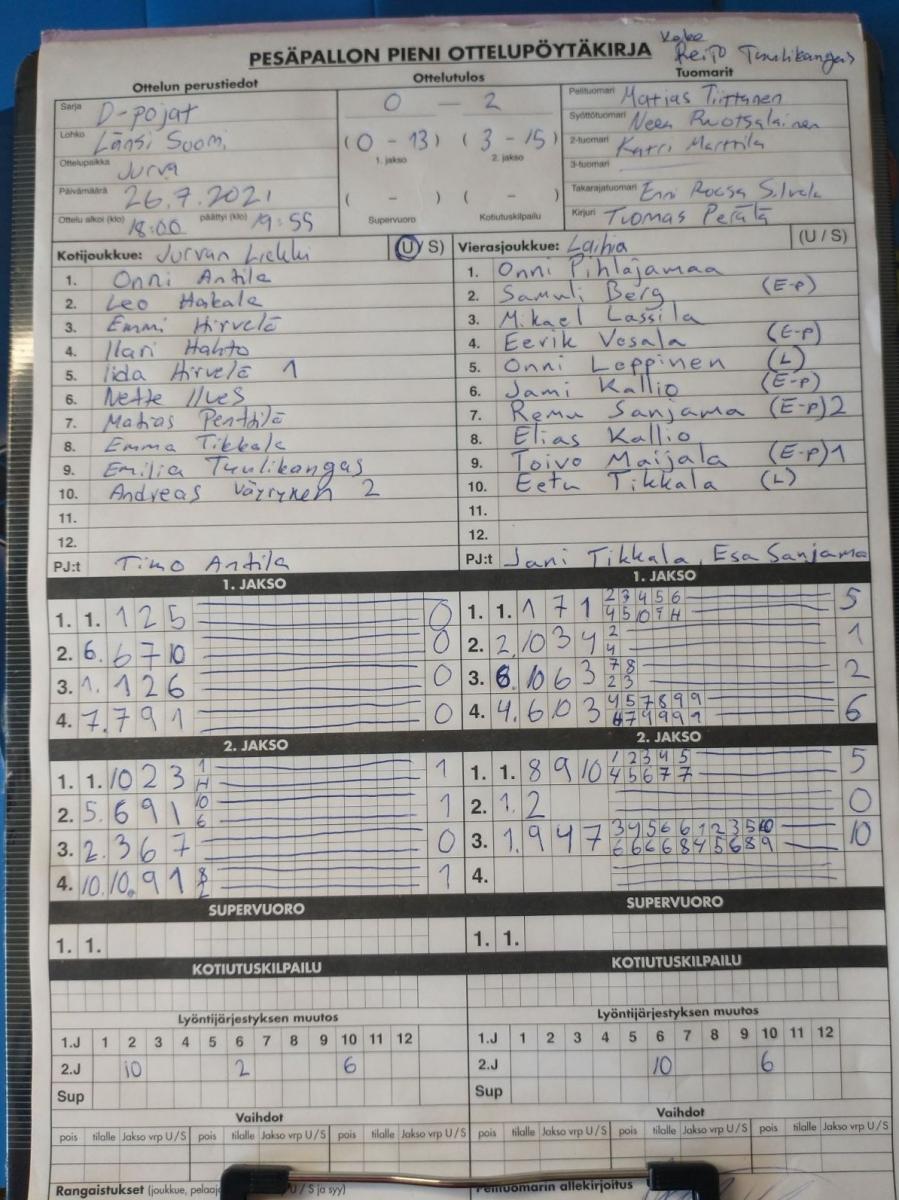 PESÄPALLON PIENI OTTELUPÖYTÄKIRJA Reijo Tuulikangas
Ottelun perustiedot Ottelutulos Tuomarit
Sarja D-pojat 0 – 2 Pelituomari Matias Tirttanen
Lohko Länsi Suomi (0 - 13) (3 - 15) Syöttötuomari Neea Ruotsalainen
1. jakso 2. jakso 2-tuomari Katri Marttila
Ottelupaikka Jurva 3-tuomari
Päivämäärä 26.7.2021 ( - ) ( - ) Takarajatuomari Enni Roosa
Ottelu alkoi (klo) 18:00 päättyi (klo) 19:55 Supervuoro Kotiutuskilpailu Kirjuri Tuomas Perätä
Kotijoukkue: Jurvan Liekki (U/S) Vierasjoukkue: Laihia (U/S)
1. Onni Antila 1. Onni Pihlajamaa
2. Leo Hakala 2. Samuli Berg (E-p)
3. Emmi Hirvelä 3. Mikael Lassila
4. Ilari Hahto 4. Eerik Vosala (E-p)
5. Iida Hirvelä 1 5. Onni Leppinen (L)
6. Nette Ilves 6. Jami Kallio (E-p)
7. Matias Penttilä 7. Remu Sanjama (E-p) 2
8. Emma Tikkala 8. Elias Kallio
9. Emilia Tuulikangas 9. Toivo Maijala (E-p) 1
10. Andreas Väyrynen 2 10. Eetu Tikkala (L)
11. 11.
12. 12.
PJ:t Timo Antila PJ:t Jani Tikkala, Esa Sanjama
1. JAKSO 1. JAKSO
1. 1. 1 2 5 0 1. 1. 1 7 1 2 3 4 5 6 5
4 5 10 9 H
2. 6. 6 7 10 0 2. 2. 10 3 4 2 1
4
3. 1. 1 2 6 0 3. 6. 10 6 3 7 8 2
2 3
4. 7. 7 9 1 0 4. 4. 6 10 3 4 5 7 8 9 9 6
6 7 9 9 9 1
2. JAKSO 2. JAKSO
1. 1. 10 2 3 1 1 1. 1. 8 9 10 1 2 3 4 5 5
H 4 5 6 7 7
2. 5. 6 9 1 10 1 2. 1. 2 0
6
3. 2. 3 6 7 0 3. 1. 9 4 7 3 4 5 6 6 1 2 3 5 10 10
6 6 6 6 8 4 5 6 8 9
4. 10. 10. 9 1 8 1 4.
2
SUPERVUORO SUPERVUORO
1. 1. 1. 1.
KOTIUTUSKILPAILU KOTIUTUSKILPAILU
Lyöntijärjestyksen muutos Lyöntijärjestyksen muutos
1.J 1 2 3 4 5 6 7 8 9 10 11 12 1.J 1 2 3 4 5 6 7 8 9 10 11 12
2.J 10 2 6 2.J 10 6
Sup Sup
Vaihdot Vaihdot
pois tilalle Jakso vrp U/S pois tilalle Jakso vrp U/S pois tilalle Jakso vrp U/S pois tilalle Jakso vrp U/S pois tilalle Jakso vrp U/S pois tilalle Jakso vrp U/S
Rangaistukset (joukkue, U/S ja syy) Pelituomarin allekirjoitus